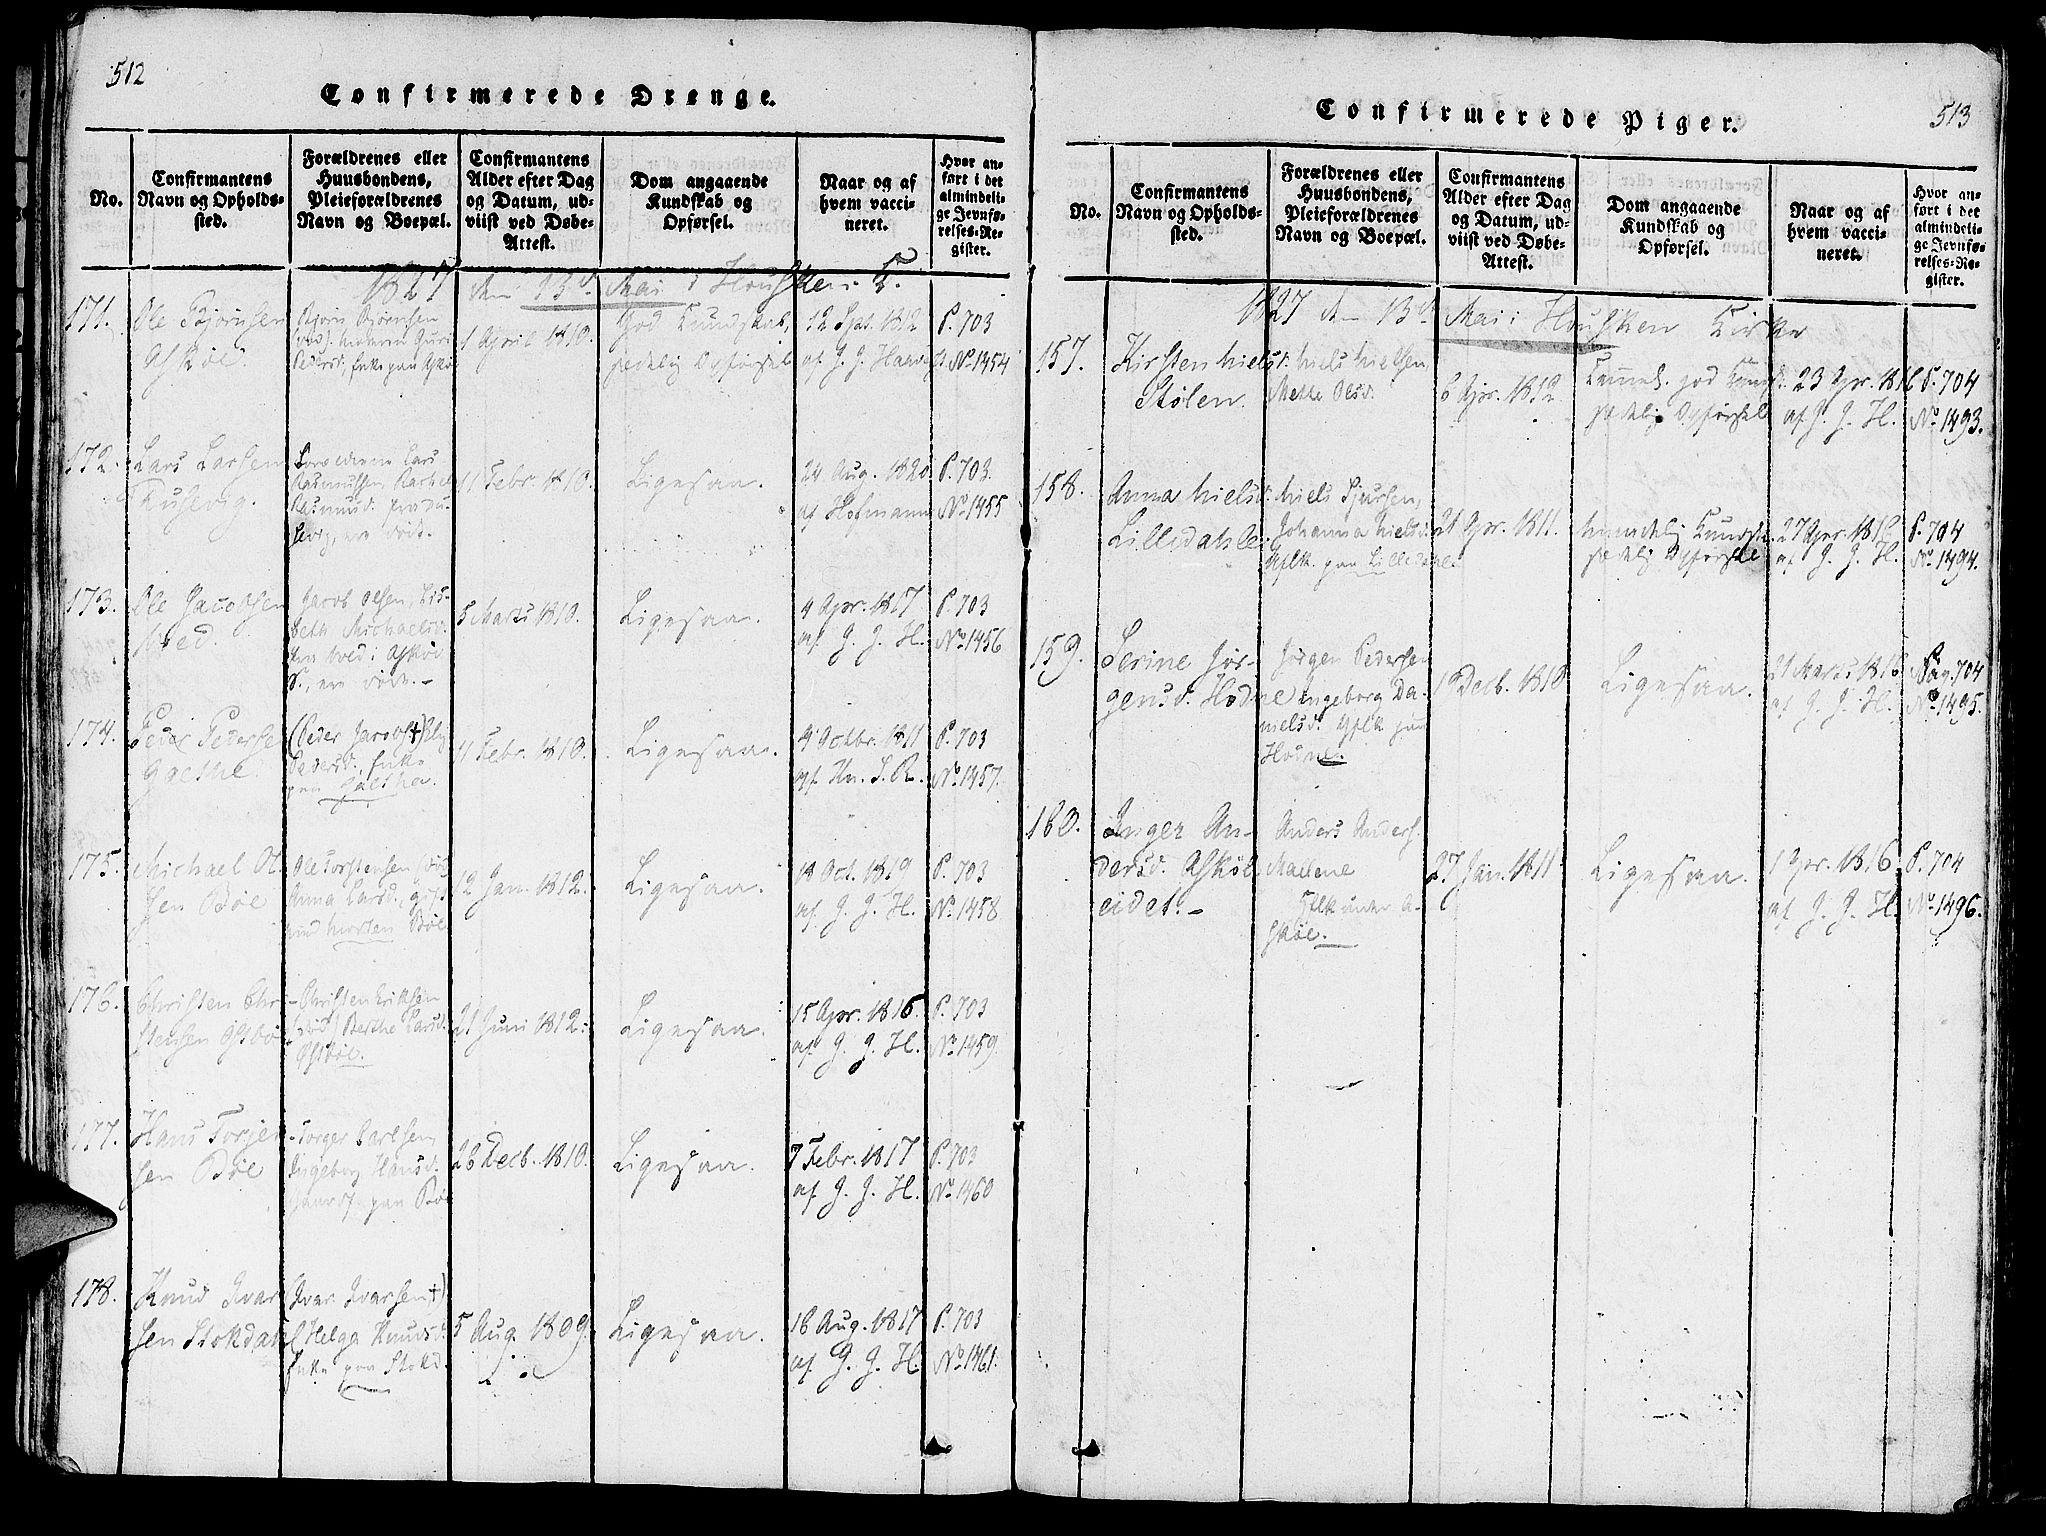 512
Confirmerede Drenge.
No.
Confirmantens
Navn og Opholds-
sted.
Forældrenes eller
Huusbondens,
Pleieforældrenes
Navn og Boepæl.
Confirmantens
Alder efter Dag
og Datum, ud-
viist ved Døbe-
Attest.
Dom angaaende
Kundskab og
Opførsel.
Naar og af
hvem vacci-
neret.
Hvor an-
ført i det
almindeli-
ge Jevnfø-
relses-Re-
gister.
1827 13 Mai i Housken K.
171.
Ole Bjørnsen
Askøe.
Bjørn Bjørnsen
Enke paa Askø
1 April 1810.
God Kundskab,
sædelig Opførsel
12 Sept. 1812
af G. J.
P. 703
No 1454
172.
Lars Larsen
Fusevig.
Forældrene Lars
Rasmussen Rachel
Rasmusd. paa Fu-
sevig, ere døde.
11 Febr. 1810.
Ligesaa.
24 Aug. 1820.
af Hofmann
P. 703.
No 1455
173.
Ole Jacobsen
Vced.
Jacob Olsen, Lis-
beth Michaelsd.
ere døde.-
5 Marts 1810.
Ligesaa.
4 Apr. 1817
af G. J. H.
P. 703
No 1456
174.
Peder Pedersen
(Peder Jacobs †)
Pedersd., Enke
paa
11 Febr. 1810.
Ligesaa.
9 Octbr. 1811
af Kn. S. R.
P. 703
No 1457.
175.
Michael Ol-
sen Bøe
Ole Torstensen (død)
Anna Larsd., gift
med Morten Bøe
12 Jan. 1812.
Ligesaa.
18 Oct. 1819
af G. J. H.
P. 703
No 1458
176.
Christen Chri-
stensen Østbø
Christen Eriksen
(død) Berthe Larsd.
Østbøe.
21 Juni 1812.
Ligesaa.
15 Apr. 1816.
af G. J. H.
P. 703
No 1459.
177.
Hans Torjer-
sen Bøe
Torger Carlsen,
Ingeborg Hansd.
paa Bøe
28 Decb. 1810.
Ligesaa.
7 Febr. 1817
af G. J. H.
P. 703
No 1460
178.
Knud Ivar-
sen Stokdahl
(Ivar Ivarsen †)
Helga Knudsd.
Enke paa Stokd.
5 Aug. 1809.
Ligesaa.
18 Aug. 1817
af G. J. H.
P. 703
No 1461.
513
Confirmerede Piger.
No.
Confirmantens
Navn og Opholds-
sted.
Forældrenes eller
Huusbondens,
Pleieforældrenes
Navn og Boepæl.
Confirmantens
Alder efter Dag
og Datum, ud-
viist ved Døbe-
Attest.
Dom angaaende
Kundskab og
Opførsel.
Naar og af
hvem vacci-
neret.
Hvor an-
ført i det
almindeli-
ge Jevnfø-
relses-Re-
gister.
1827 13 Mai i Housken Kirke
157.
Kirsten Nielsd.
Stølen.
Niels Nielsen,
Mette Olsd.
6 Apr. 1812
god Kundsk.
sædelig Opførsel
23 Apr. 1816
af G. J. H.
P. 704
No 1493.
158.
Anna Nielsd.
Lilledahle.
Niels Sjursen,
Johanna Nielsd.
Gflk. paa Lilledahle.
21 Apr. 1811.
Kundsk.
sædelig Opførsel
27 Apr. 1812
af G. J. H.
P. 704
No 1494.
159.
Serine Jør-
gensd. Hodne
Jørgen Pedersen
Ingeborg Da-
nielsd. Gflk. paa
Hodne.
1 Decb. 1810
Ligesaa.
21 Marts 1816
af G. J. H.
Pag. 704
No 1495.
160.
Inger An-
dersd. Askøe
eidet.-
Anders Anders.
Mallene
Gflk under A-
skøe.
27 Jan. 1811
Ligesaa.
1 Apr. 1816.
af G. J. H.
P. 704
No 1496.